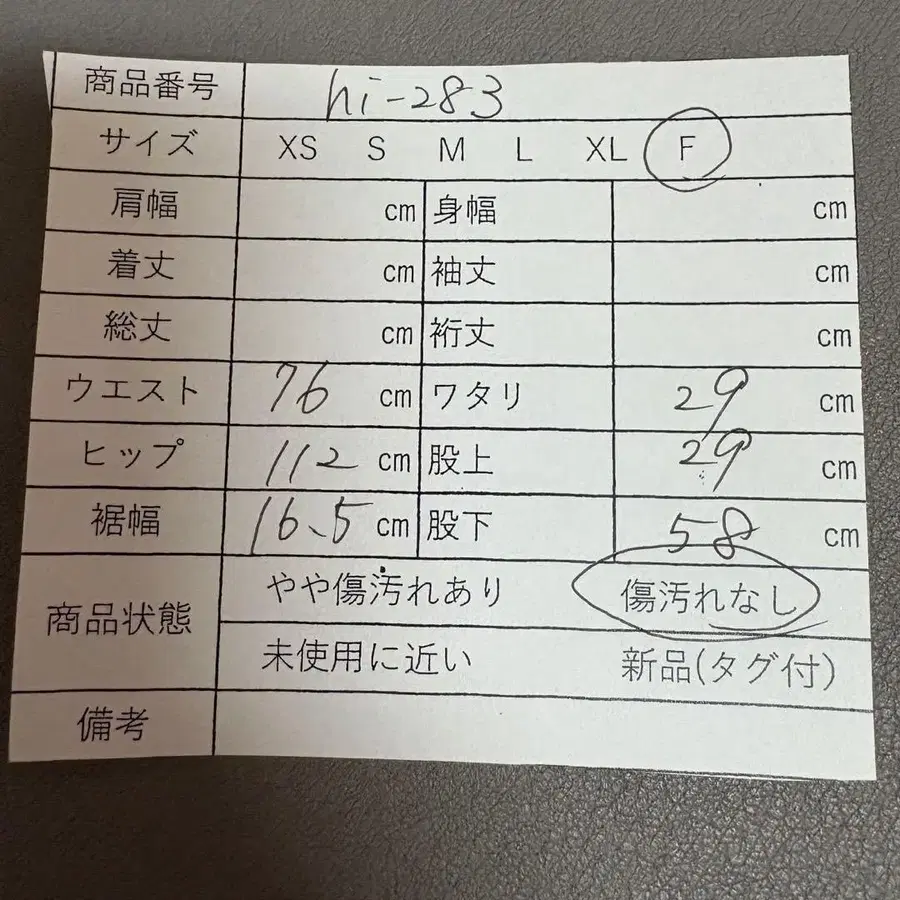 商品番号 hi-283
サイズ XS S M L XL F
肩幅 cm 身幅 cm
着丈 cm 袖丈 cm
総丈 cm 裄丈 cm
ウエスト 76 cm ワタリ 29 cm
ヒップ 112 cm 股上 29 cm
裾幅 16.5 cm 股下 58 cm
商品状態 やや傷汚れあり 傷汚れなし
未使用に近い 新品(タグ付)
備考